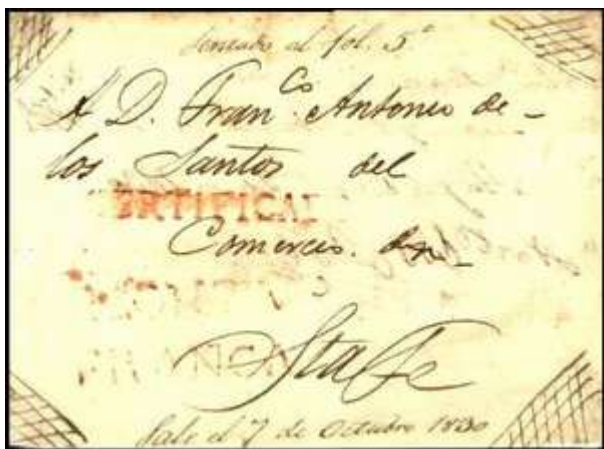 Sentado al fol. 5º
A D. Franco. Antonio de
los Santos del
ERTIFICA
Comercio. de
FRANCA
Sta Fe
Sale el 7 de Octubre 1830